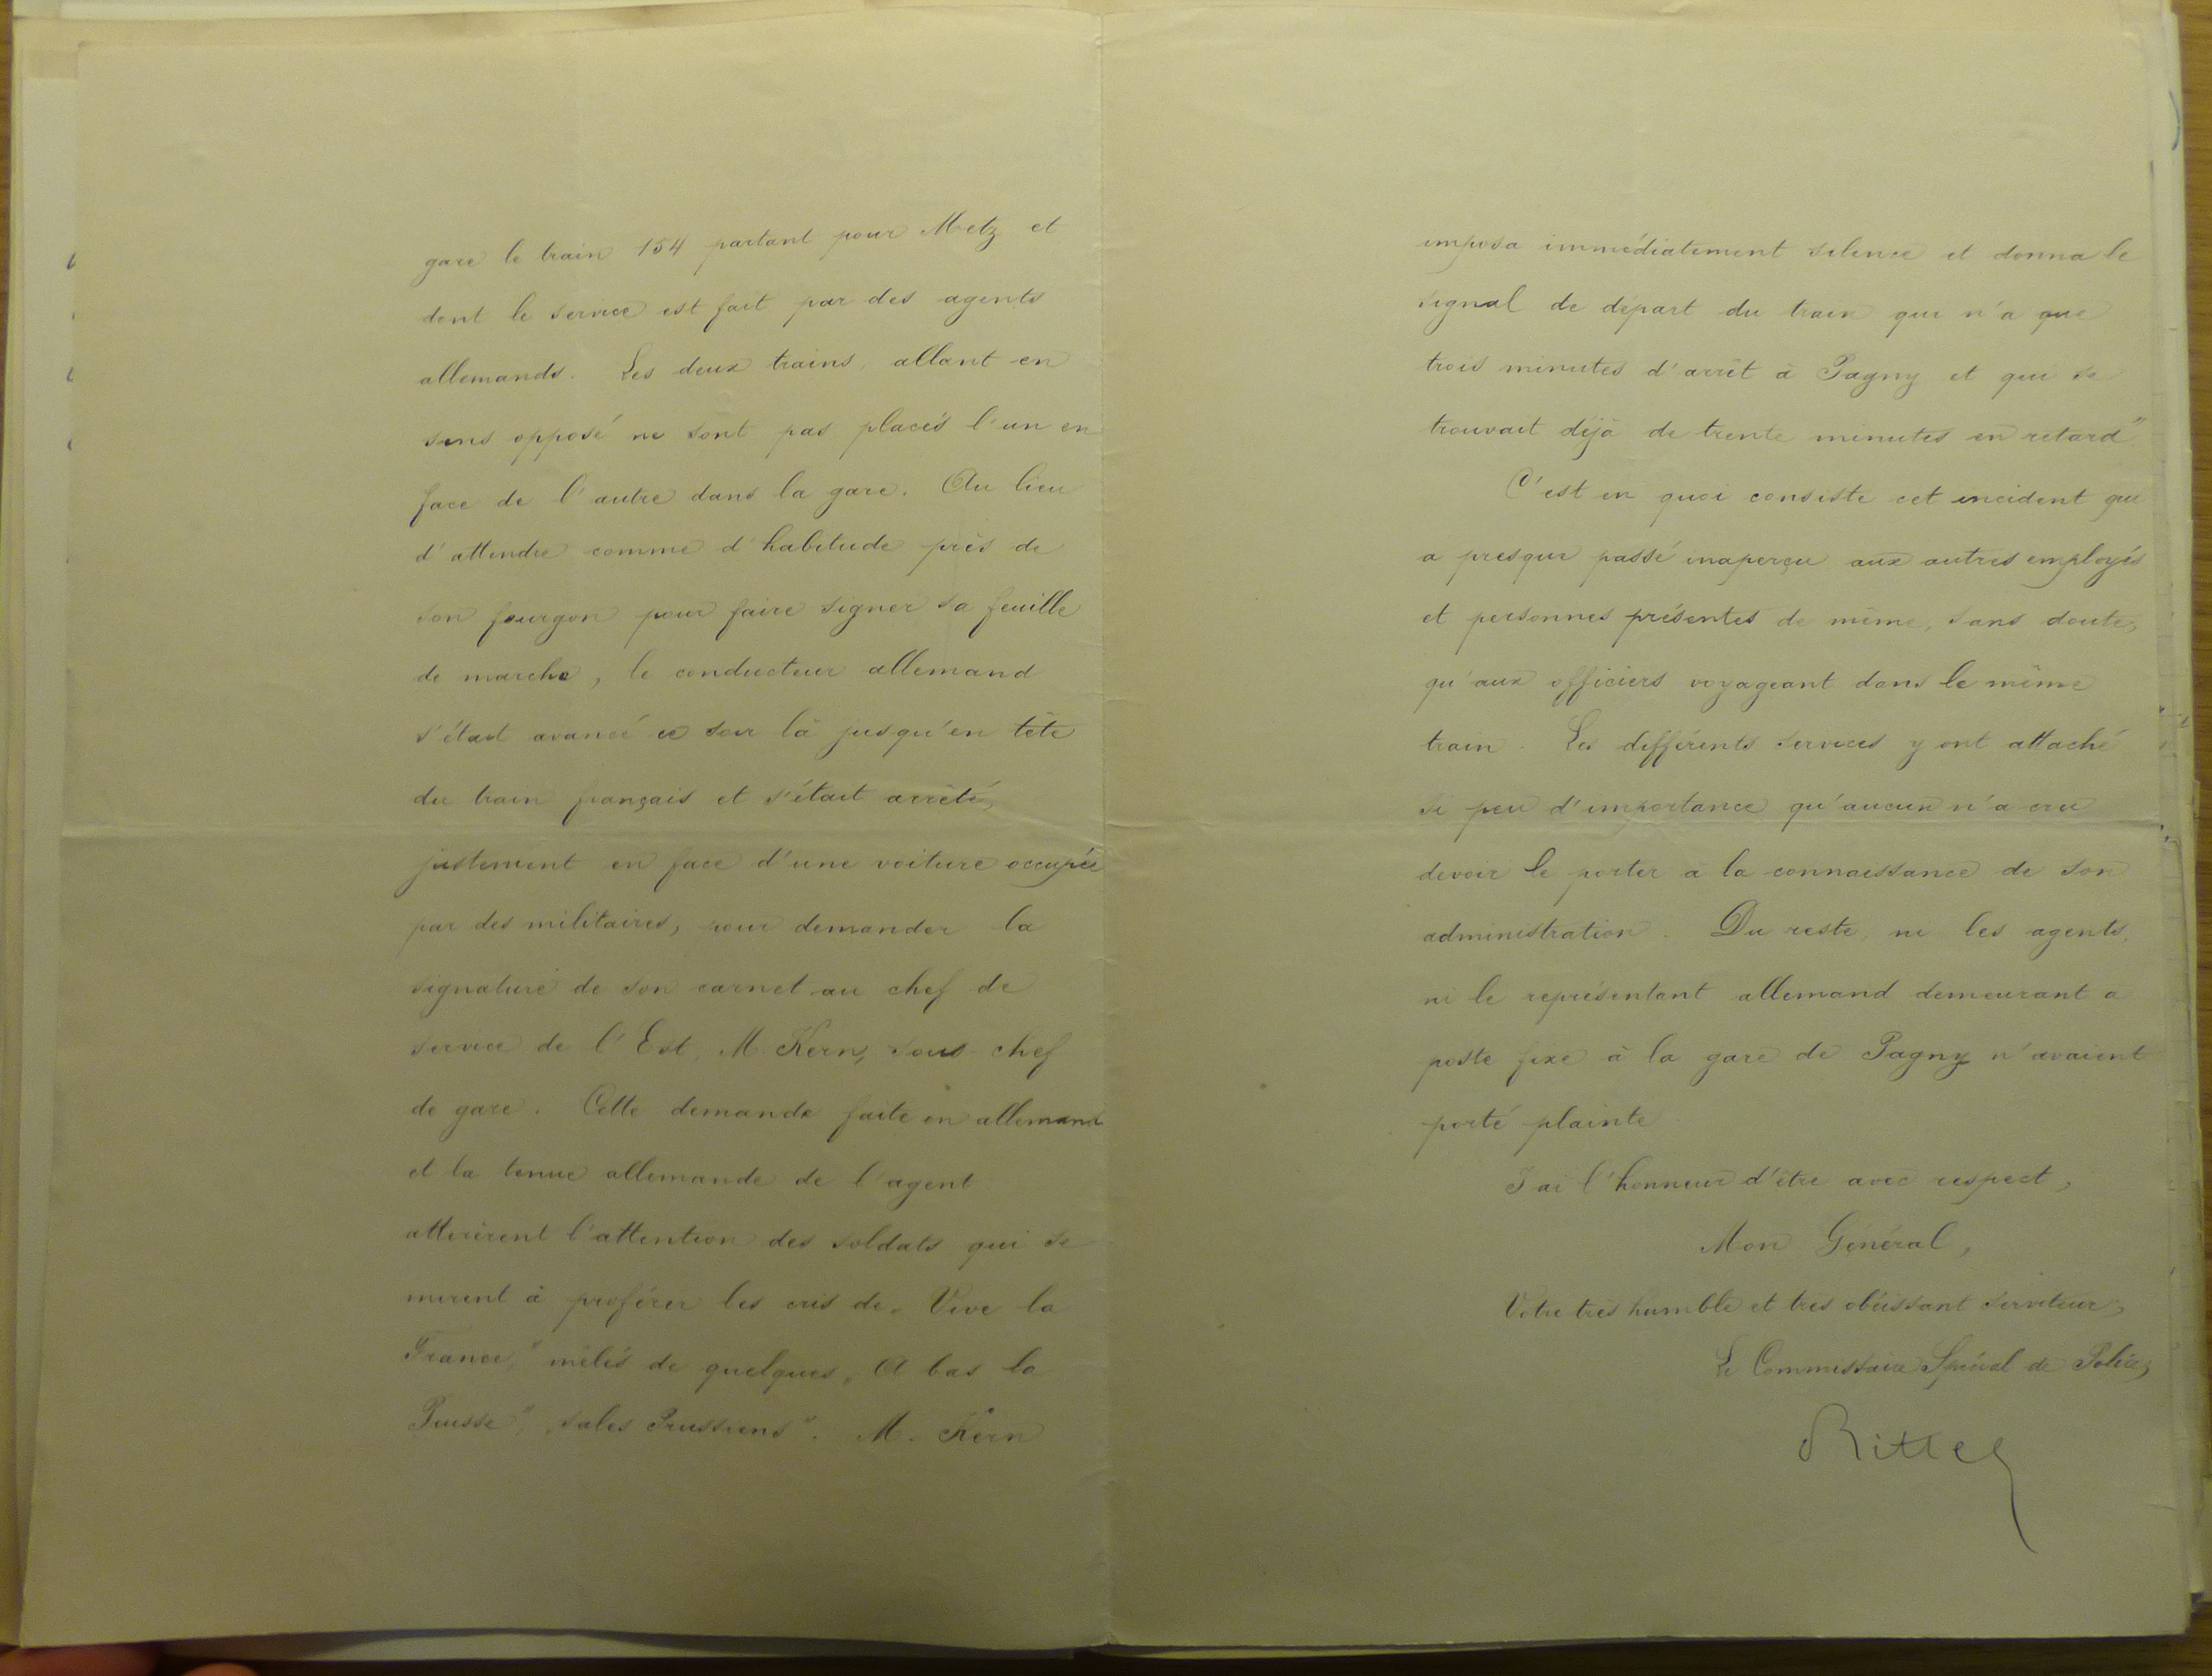 gare le train 154 partant pour Metz et
dont le service est fait par des agents
allemands. Les deux trains, allant en
sens opposé ne sont pas placés l'un en
face de l'autre dans la gare. Au lieu
d'attendre comme d'habitude près de
son fourgon pour faire signer sa feuille
de marche, le conducteur allemand
s'était avancé ce soir là jusqu'en tête
du train français et s'était arrêté,
justement en face d'une voiture occupée
par des militaires, pour demander la
signature de son carnet au chef de
service de l'Est, M. Kern, sous-chef
de gare. Cette demande faite en allemand
et la tenue allemande de l'agent
attirèrent l'attention des soldats qui se
mirent à proférer les cris de „Vive la
France," mêlés de quelques „A bas la
Prusse", „sales Prussiens". M. Kern
imposa immédiatement silence et donna le
signal de départ du train qui n'a que
trois minutes d'arrêt à Pagny et qui se
trouvait déjà de trente minutes en retard"
C'est en quoi consiste cet incident qui
a presque passé inaperçu aux autres employés
et personnes présentes de même, sans doute,
qu'aux officiers voyageant dans le même
train. Les différents services y ont attaché
si peu d'importance qu'aucun n'a cru
devoir le porter à la connaissance de son
administration. Du reste, ni les agents,
ni le représentant allemand demeurant a
poste fixe à la gare de Pagny n'avaient
porté plainte
J'ai l'honneur d'être avec respect,
Mon Général,
Votre très humble et très obéissant serviteur,
Le Commissaire Spécial de Police,
Ritter